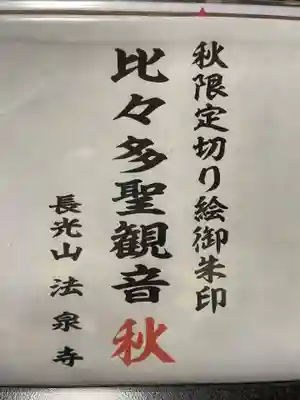 秋限定切り絵御朱印
比々多聖観音秋
長光山法泉寺